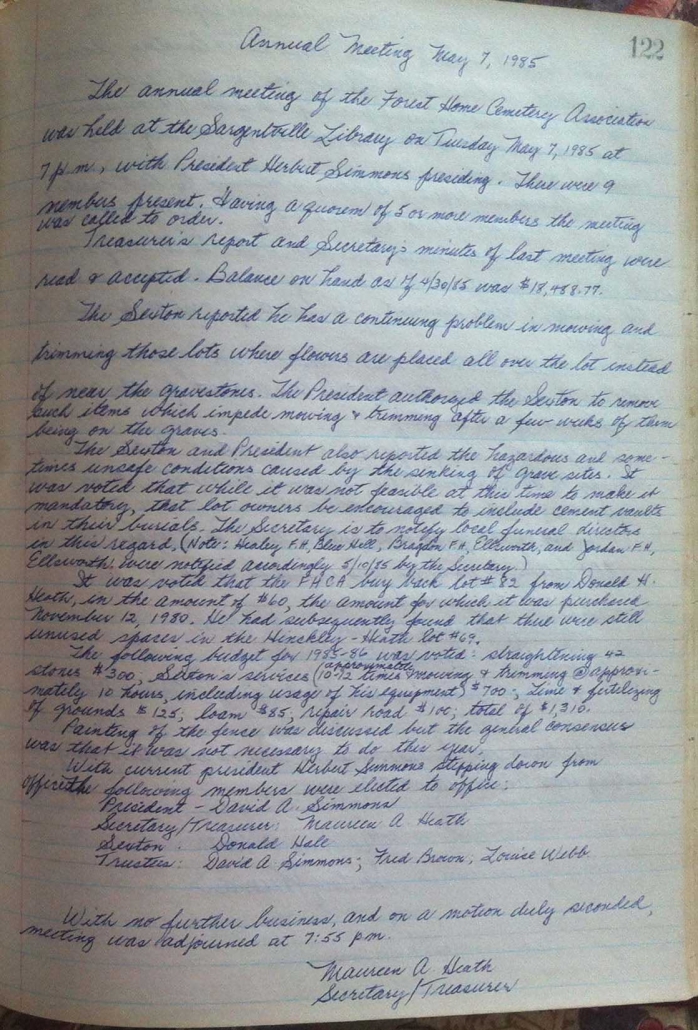 122
Annual Meeting May 7, 1985
The annual meeting of the Forest Home Cemetery Association
was held at the Sargentville Library on Tuesday May 7, 1985 at
7 p.m., with President Herbert Simmons presiding. There were 9
members present. Having a quorem of 5 or more members the meeting
was called to order.
Treasurer's report and Secretary's minutes of last meeting were
read & accepted. Balance on hand as of 4/30/85 was $18,458.77.
The Sexton reported he has a continuing problem in mowing and
trimming those lots where flowers are placed all over the lot instead
of near the gravestones. The President authorized the Sexton to remove
such items which impede mowing & trimming after a few weeks of them
being on the graves.
The Sexton and President also reported the hazardous and some-
times unsafe conditions caused by the sinking of grave sites. It
was voted that while it was not feasible at this time to make it
mandatory, that lot owners be encouraged to include cement vaults
in their burials. The Secretary is to notify local funeral directors
in this regard. (Note: Healey F.H, Blue Hill, Bragdon F.H, Ellsworth, and Jordan F.H,
Ellsworth were notified accordingly 5/10/85 by the Secretary.)
It was voted that the FHCA buy back lot #82 from Donald H.
Heath, in the amount of $60, the amount for which it was purchased
November 12, 1980. He had subsequently found that there were still
unused spaces in the Hinckley-Heath lot #69.
The following budget for 1985-86 was voted: straightening 42
stones $300; Sexton's services (approximately 10-12 times mowing & trimming @ approxi-
mately 10 hours, including usage of his equipment) $700; lime & fertilizing
of grounds $125; loam $85; repair road $100; total of $1,310.
Painting of the fence was discussed but the general consensus
was that it was not necessary to do this year.
With current president Herbert Simmons stepping down from
office the following members were elected to office:
President - David A. Simmons
Secretary/Treasurer: Maureen A Heath
Sexton: Donald Hale
Trustees: David A Simmons; Fred Brown; Louise Webb
With no further business, and on a motion duly seconded,
meeting was adjourned at 7:55 pm.
Maureen A Heath
Secretary/Treasurer